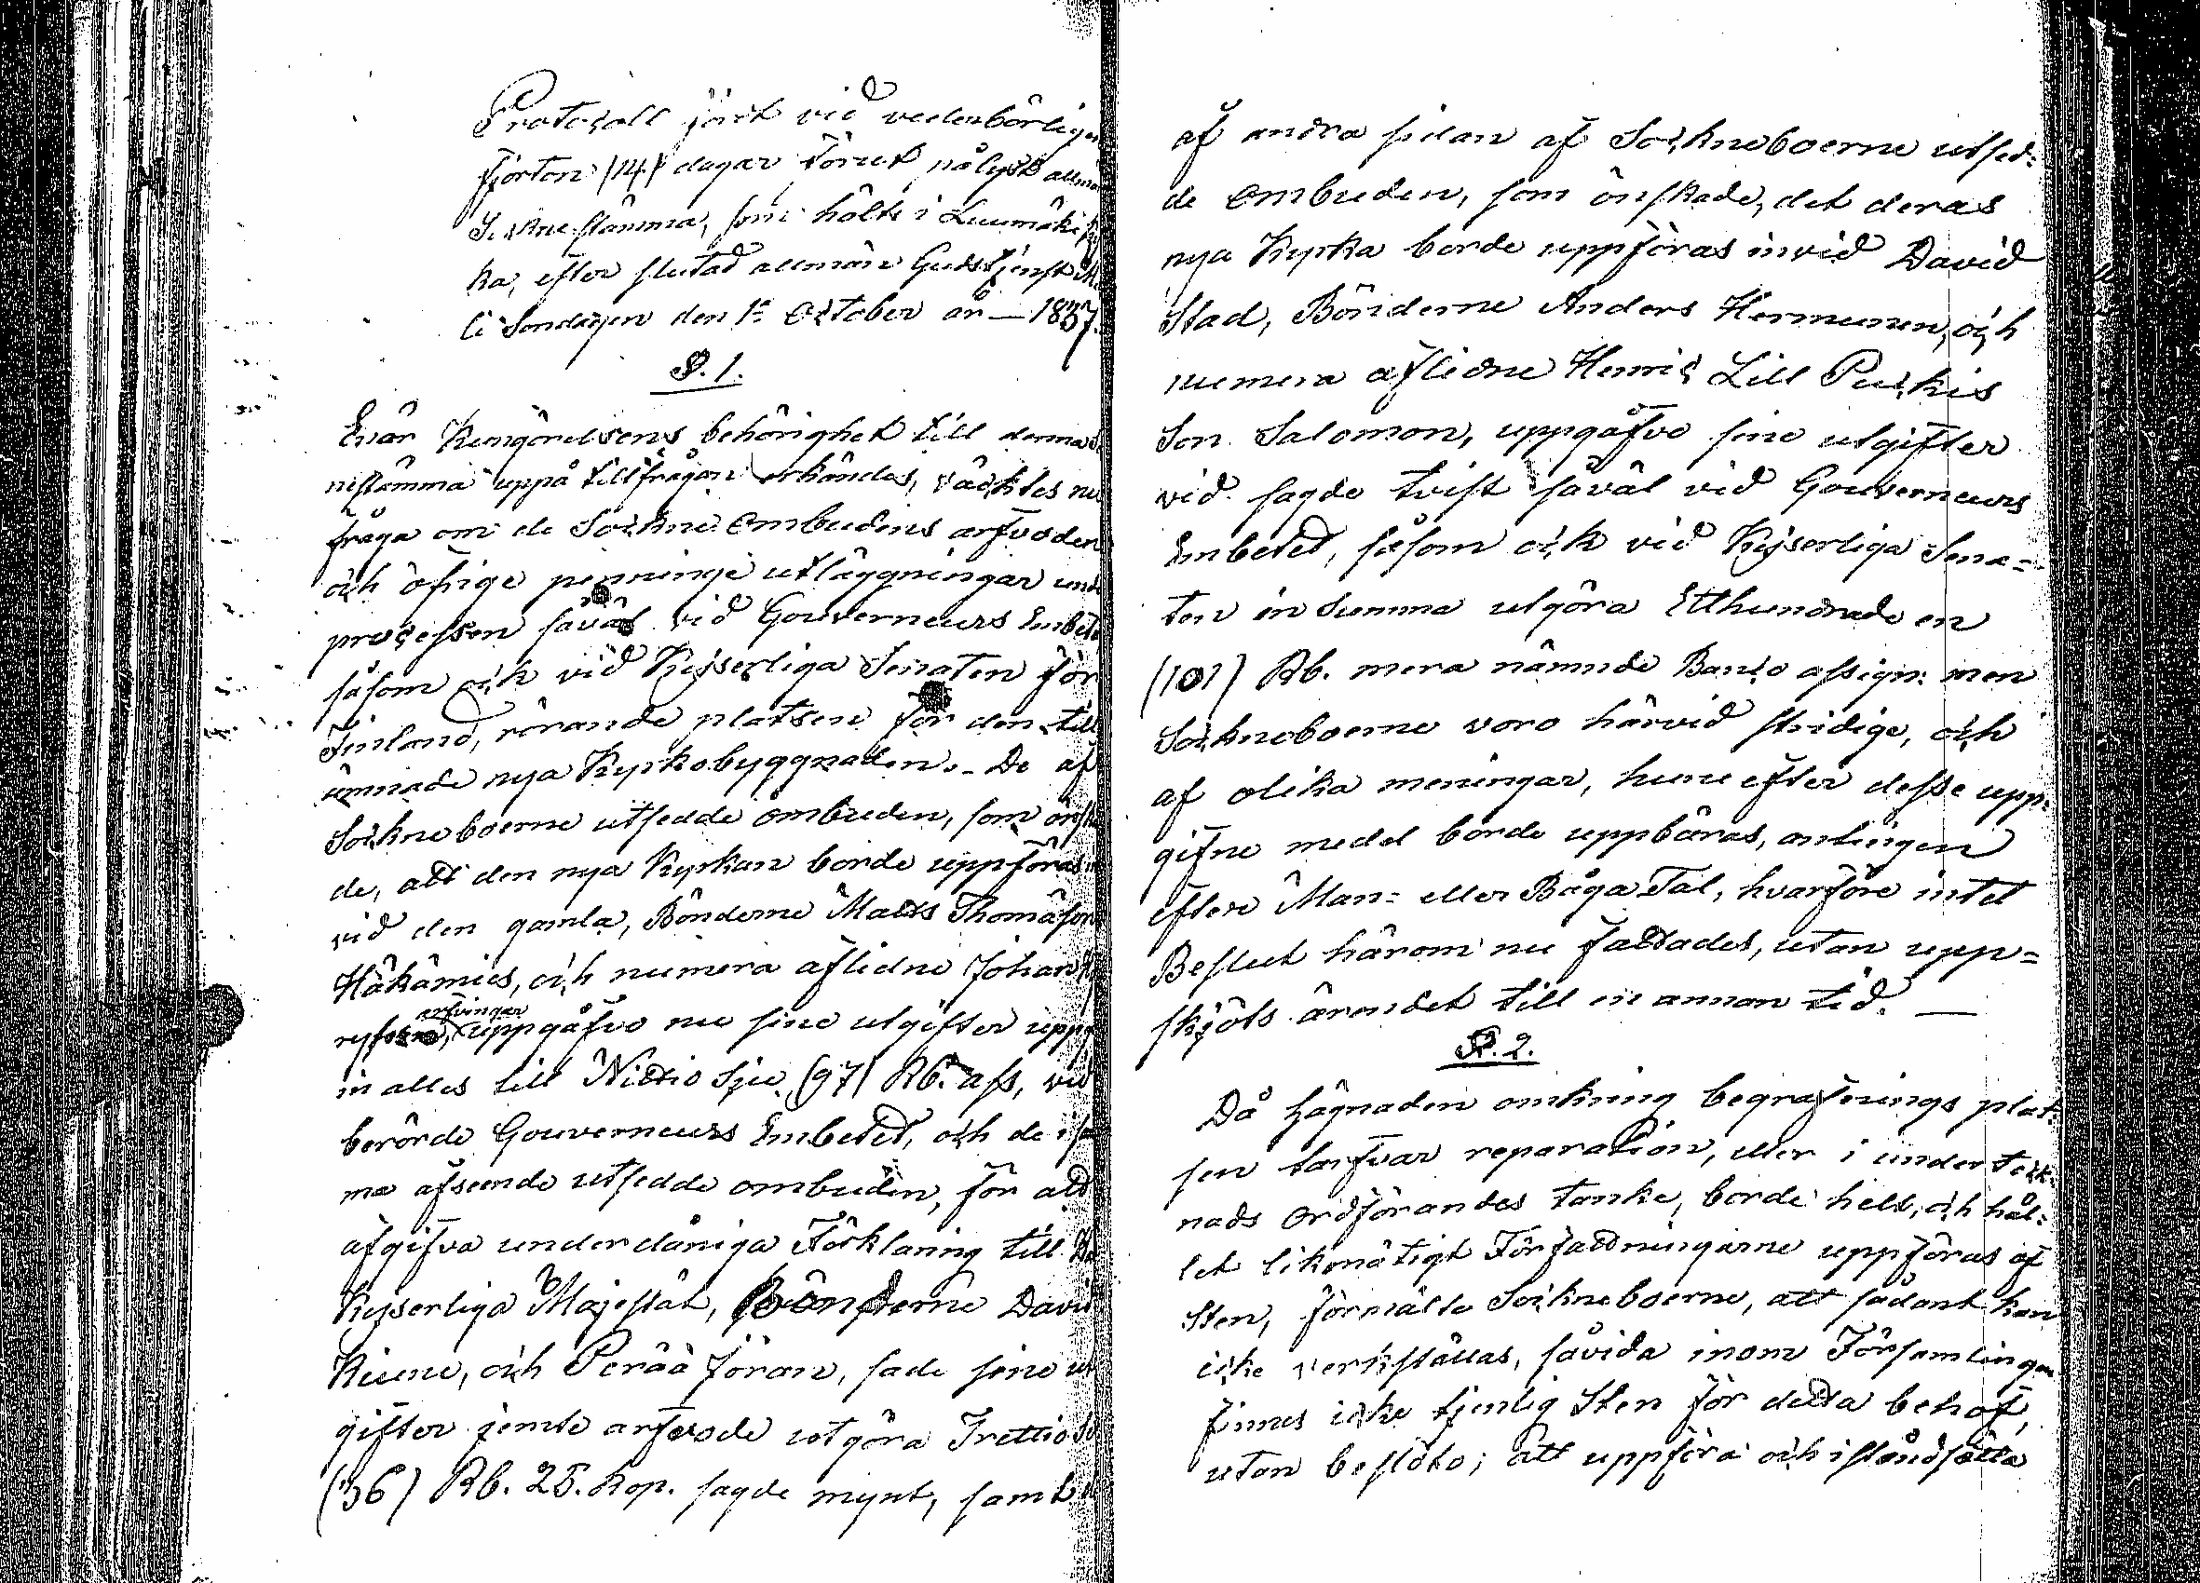 Protocoll fördt vid vederbörligen
fjorton (14) dagar förut pålyst allmän
Sockne stämma, som hölts i Luumäki
ka, efter slutad allmän Gudstjenst
Söndagen den 1:e October år — 1837.
§. 1.
Enär Kungörelsens behörighet till denna
nestämma uppå tillfrågan erkändes, väcktes nu
fråga om de Sockne Ombudens arfvoden
och öfrige penninge utläggningar und
processen såväl vid Gouverneurs Embete
såsom ock vid Kejserliga Senaten för
Finland, rörande platsen för den till
ämnade nya Kyrkobyggnaden. - De af
Sockneboerne utsedde ombuden, som önska
de, att den nya Kyrkan borde uppföras
vid den gamla, Bönderne Matts Thomasson
Häkämies, och numera aflidne Johan
arfvingar
uppgåfvo nu sine utgifter uppgå
in alles till Nittio Sju (97) Rb. ass, vid
berörde Gouverneurs Embetet, och de i
ma afseende utsedde ombuden, för att
afgifva underdåniga Förklaring till
Kejserliga Majestät, Bönderne David
Kiune, och Perää Jöran, sade sine ut
gifter jemte arfvode utgöra Trettio
(36) Rb. 25. Kop. sagde mynt, samt
af andra sidan af Sockneboerne utsed-
de Ombuden, som önskade, det deras
nya Kyrka borde uppföras invid David
Stad, Bönderne Anders Hermunen, och
numera aflidne Henric Lill Puckis
Son Salomon, uppgåfvo sine utgifter
vid sagde tvist såväl vid Gouverneurs
Embetet, såsom ock vid Kejserliga Sena-
ten in Summa utgöra Etthundrade en
(101) Rb. mera nämnde Banco assign: men
Sockneboerne voro härvid stridige, och
af olika meningar, huru efter desse upp-
gifne medel borde uppbäras, antingen
efter Man- eller Båga Tal, hvarföre intet
Beslut härom nu fattades, utan upp-
skjöts ärendet till en annan tid. —
§. 2.
Då hägnaden omkring begrafnings plat-
sen tarfvar reparation, eller i underteck-
nads Ordförandes tanke, borde helt, och hål-
let likmätigt Författningarne uppföras af
Sten, förmälte Sockneboerne, att sådant kan
icke verkställas, såvida inom Församlingen
finnes icke tjenlig Sten för detta behof,
utan beslöto; att uppföra och iståndsätta